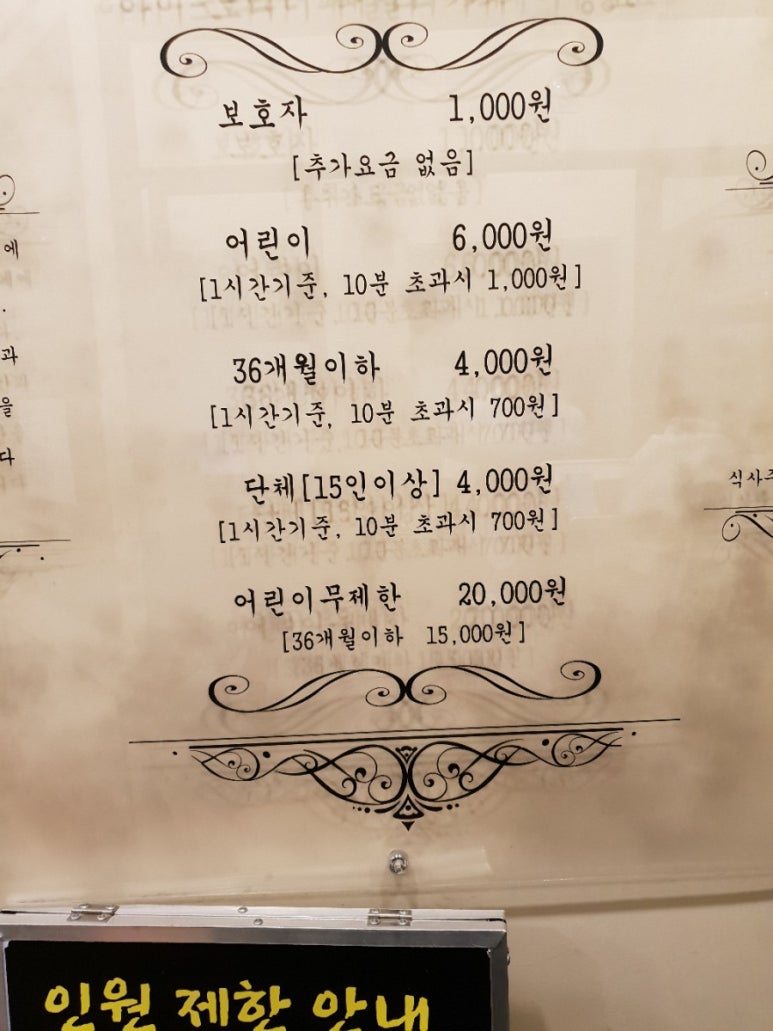 보호자 1,000원
[추가요금 없음]
어린이 6,000원
[1시간기준, 10분 초과시 1,000원]
36개월이하 4,000원
[1시간기준, 10분 초과시 700원]
단체[15인이상] 4,000원
[1시간기준, 10분 초과시 700원]
어린이무제한 20,000원
[36개월이하 15,000원]
에
과
을
다
식사
인원 제한 안내